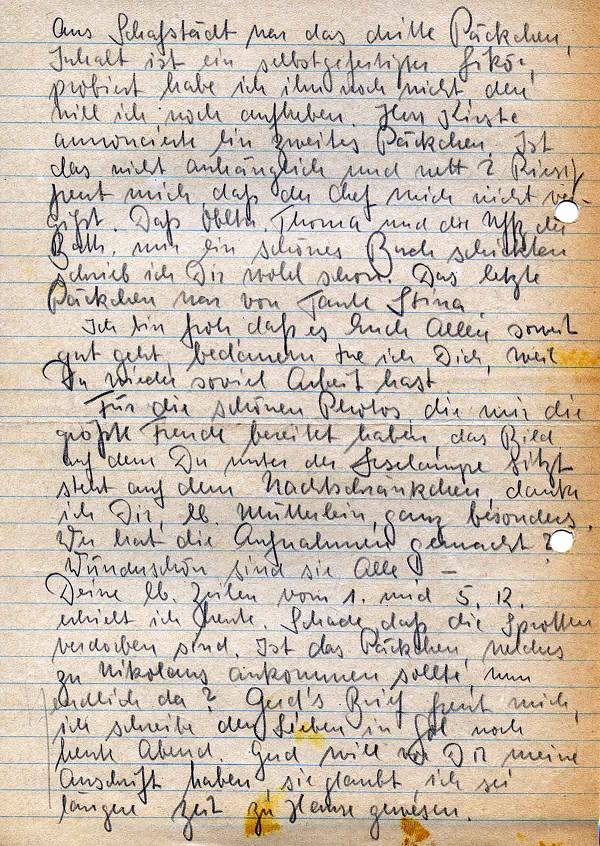 Aus Schafstädt war das dritte Päckchen,
Inhalt ist ein selbstgefertigter Likör,
probiert habe ich ihn noch nicht, den
will ich noch aufheben. Herr Kirste
annoncierte ein zweites Päckchen. Ist
das nicht anhänglich und nett? Riesig
freut mich daß der Chef mich nicht ver-
gißt. Daß Obltn. Thoma und die Uffz. der
Battr. mir ein schönes Buch schickten
schrieb ich Dir wohl schon. Das letzte
Päckchen war von Tante Stina.
Ich bin froh daß es Euch Allen soweit
gut geht, bedauern tue ich Dich, weil
Du wieder soviel Arbeit hast.
Für die schönen Photos die mir die
größte Freude bereitet haben, das Bild
auf dem Du unter der Leselampe sitzt
steht auf dem Nachtschränkchen, danke
ich Dir, lb. Mütterlein, ganz besonders.
Wer hat die Aufnahmen gemacht?
Wunderschön sind sie Alle! —
Deine lb. Zeilen vom 1. und 5. 12.
erhielt ich heute. Schade daß die Sprotten
verdorben sind. Ist das Päckchen, welches
zu Nikolaus ankommen sollte, nun
endlich da? Gerd's Brief freut mich,
ich schreibe den Lieben in noch
heute Abend. Gerd will von Dir meine
Anschrift haben, sie glaubt, ich sei
längere Zeit zu Hause gewesen.